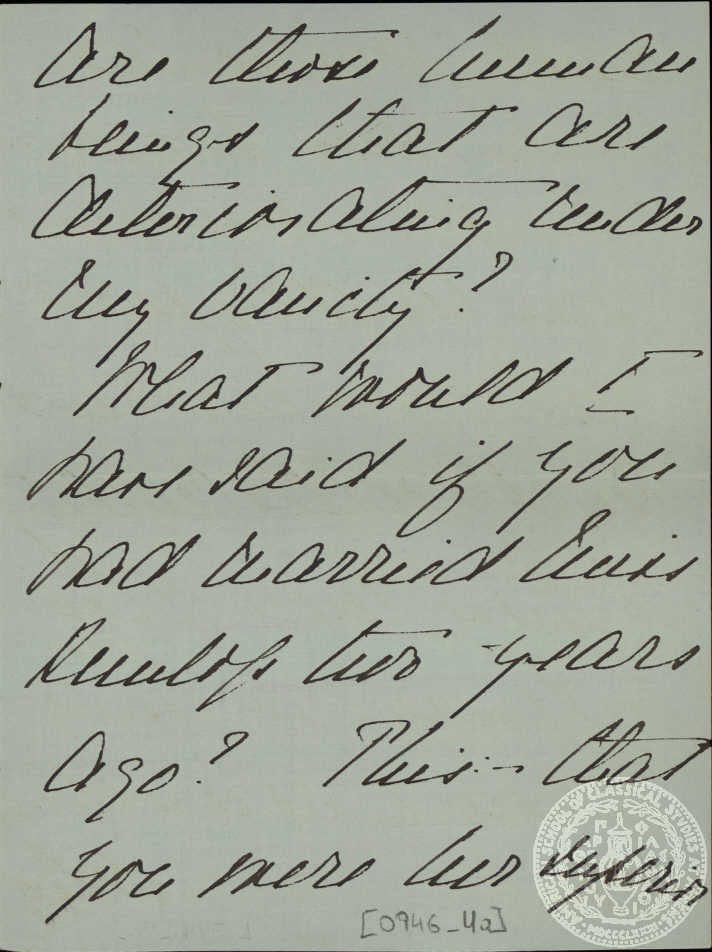 Are those human
beings that are
deteriorating under
my vanity?
What would I
have said if you
had married Miss
Dunlop two years
ago? This:- that
you were her superior
[0946_4a]
SCHOOL OF CLASSICAL STUDIES